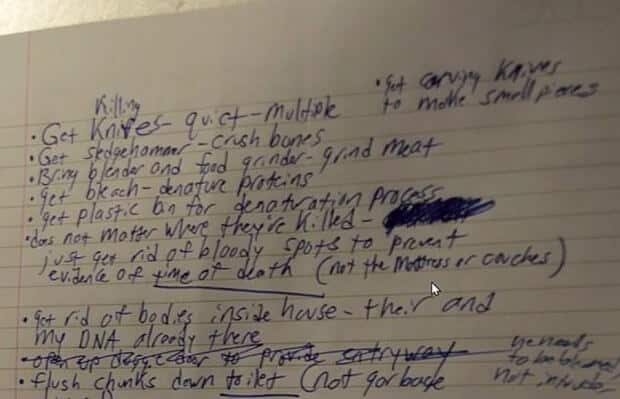 Killing
• Get Knives - quiet - multiple
• Get carving knives
to make small pieces
• Get sledgehammer - crush bones
• Bring blender and food grinder - grind meat
• get bleach - denature proteins
• get plastic bin for denaturation process
• does not matter where they're killed -
just get rid of bloody spots to prevent
evidence of time of death (not the mattress or couches)
• get rid of bodies inside house - their and
my DNA already there
• open up doggy door to provide entryway
• flush chunks down toilet (not garbage
he needs
to be blamed
not intruder